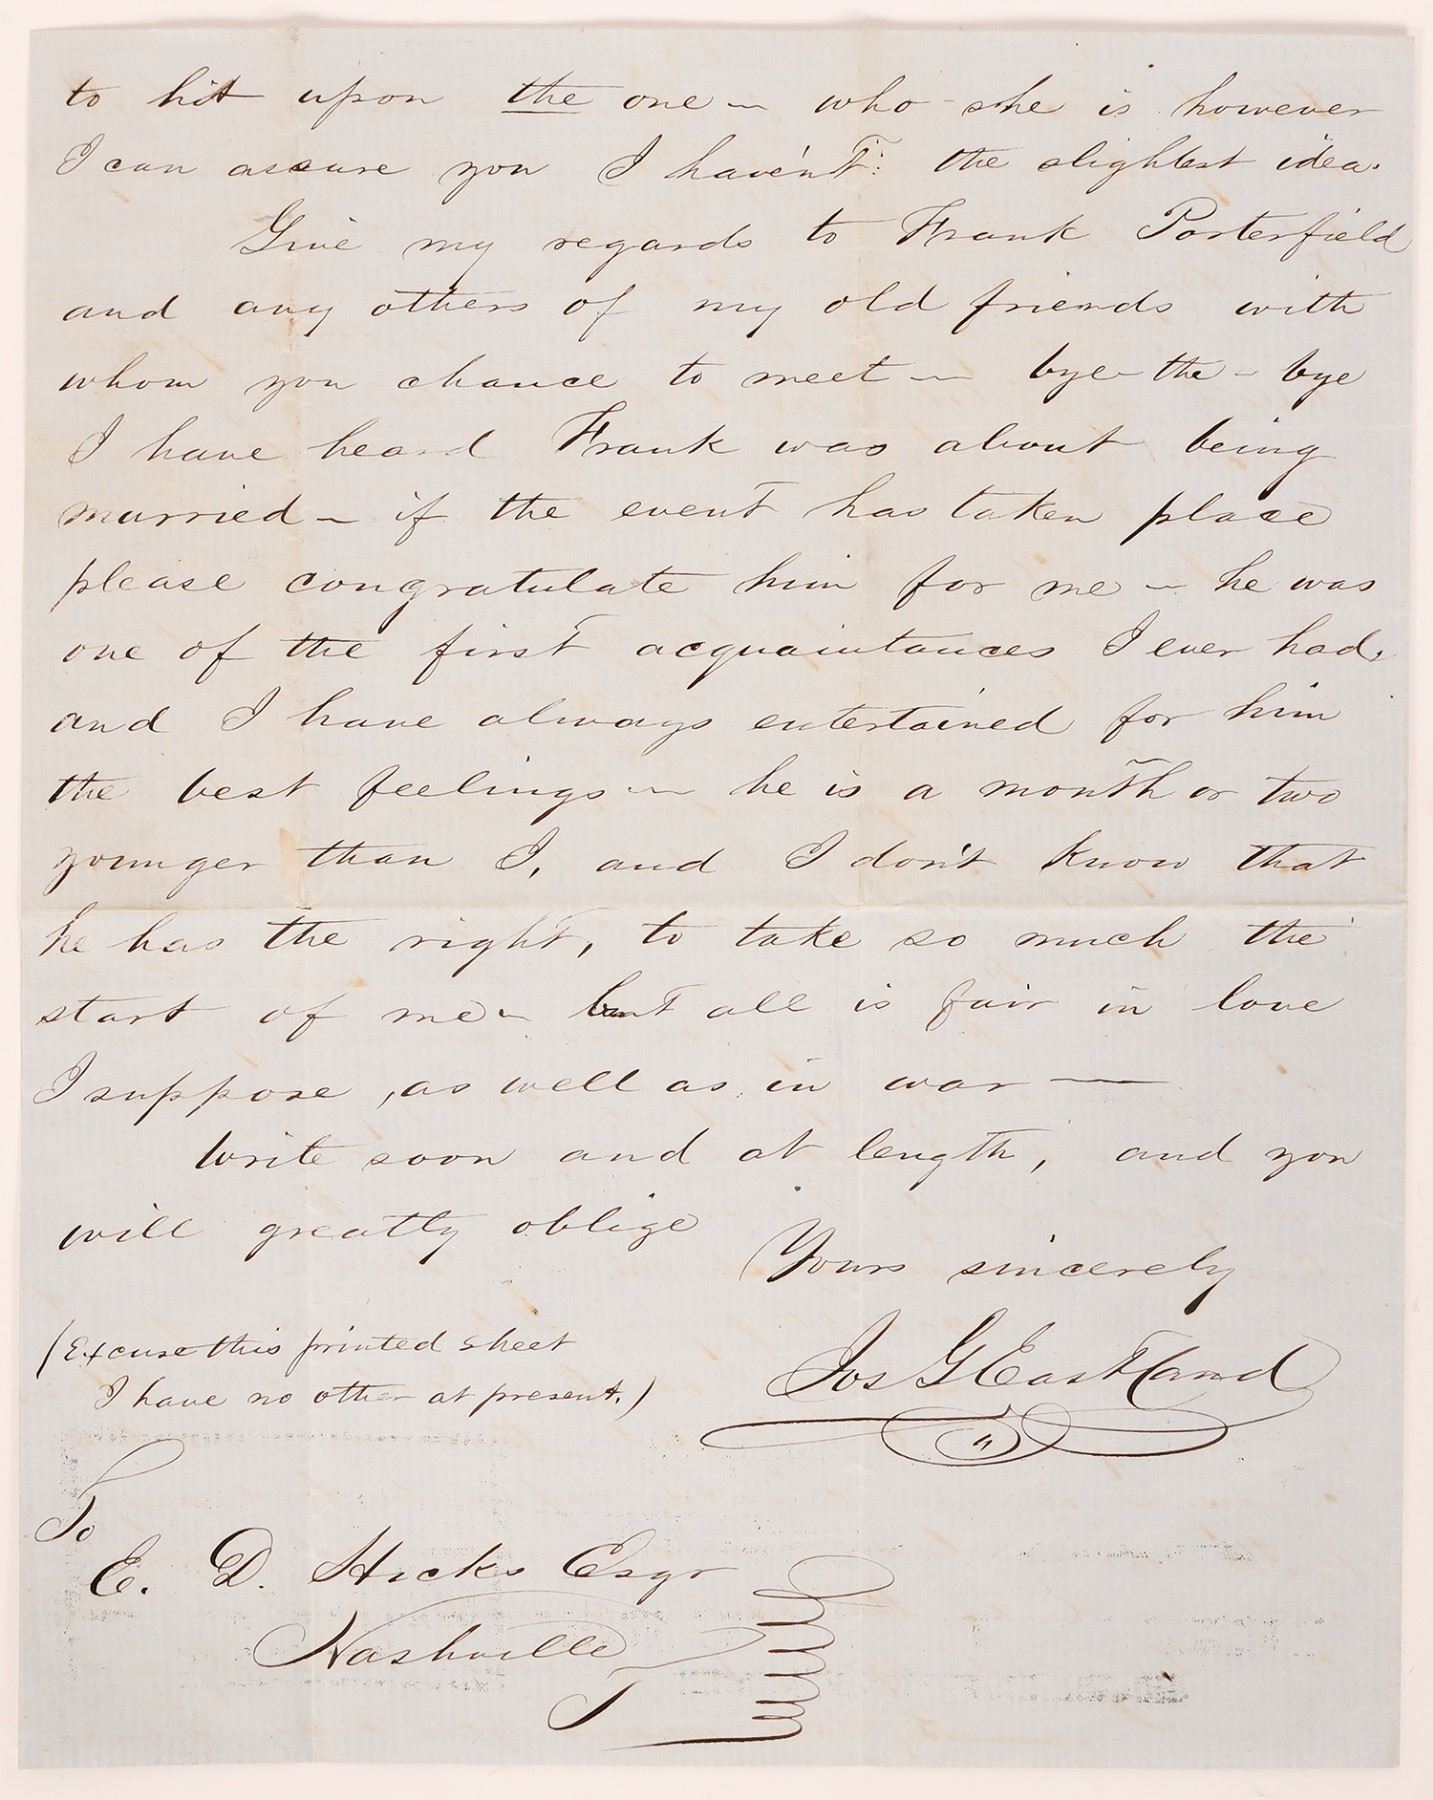 to hit upon the one – who she is however
I can assure you I haven't the slightest idea.
Give my regards to Frank Porterfield
and any others of my old friends with
whom you chance to meet – bye-the-bye
I have heard Frank was about being
married – if the event has taken place
please congratulate him for me – he was
one of the first acquaintances I ever had,
and I have always entertained for him
the best feelings – he is a month or two
younger than I, and I don't know that
he has the right, to take so much the
start of me – but all is fair in love
I suppose, as well as in war —
Write soon and at length, and you
will greatly oblige
Yours sincerely
Jos G Eastland
(Excuse this printed sheet
I have no other at present.)
To
E. D. Hicks Esqr
Nashville
T